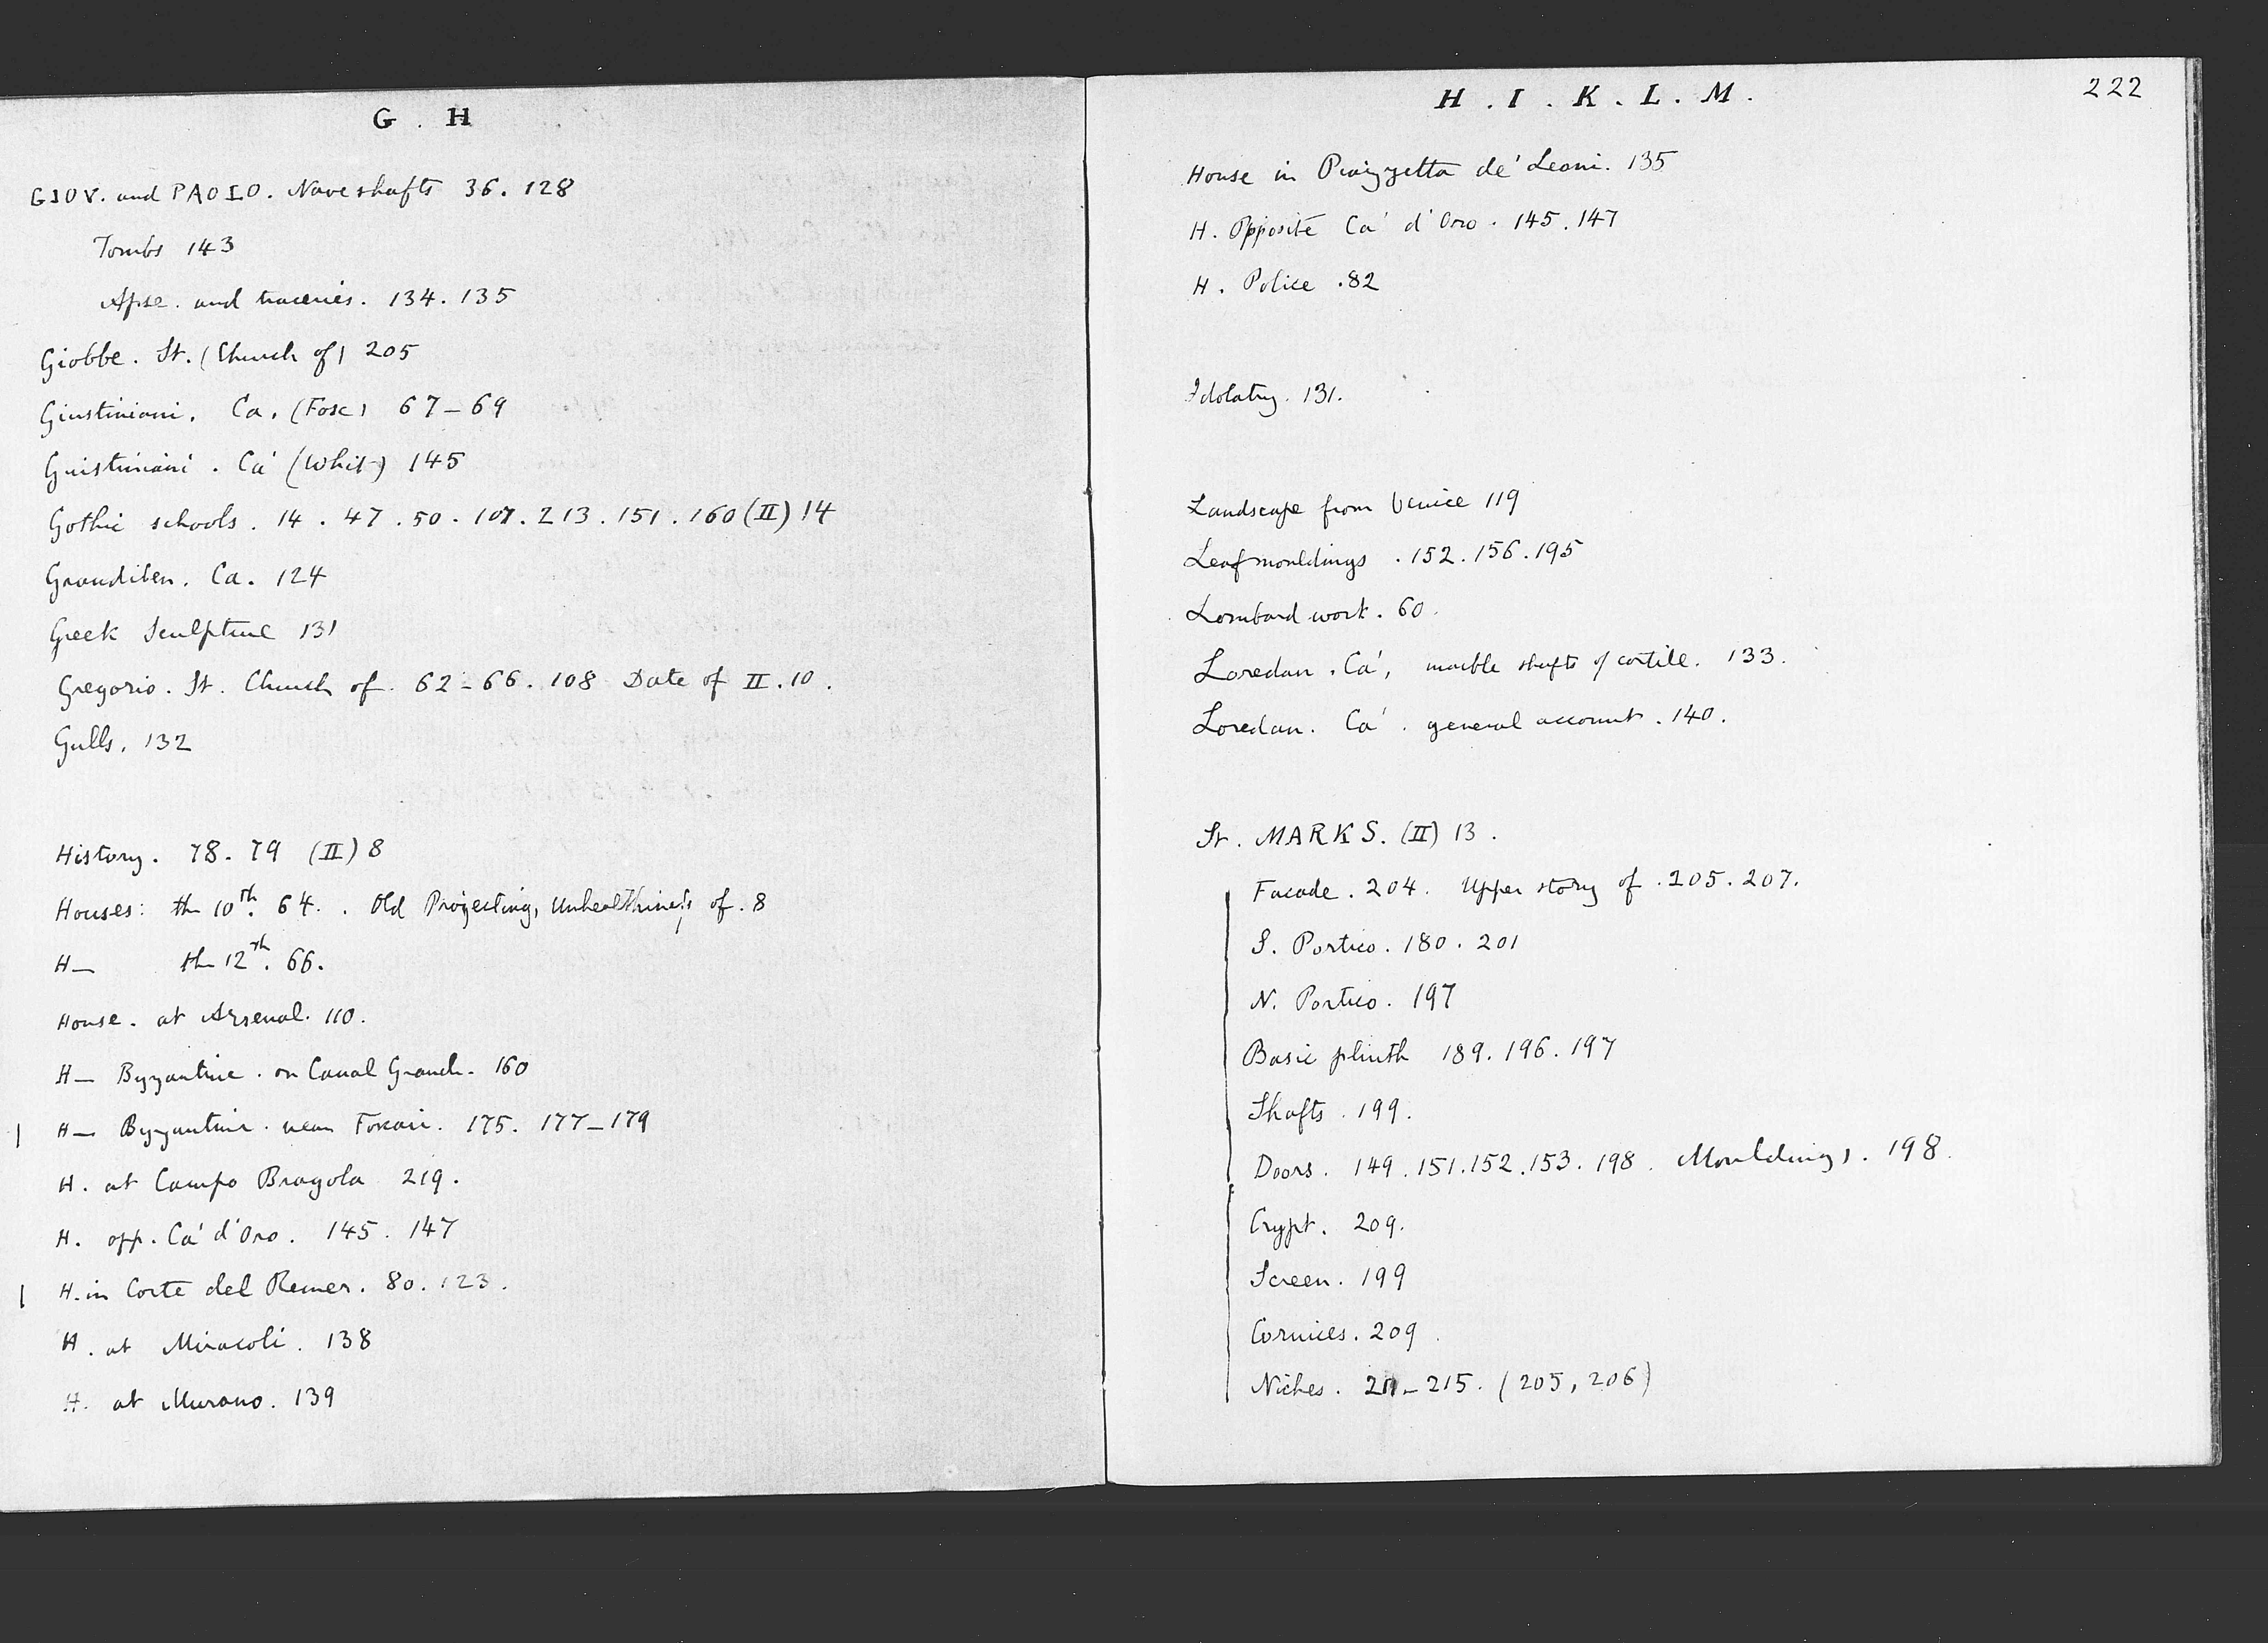 G . H
GIOV. and PAOLO. Nave shafts 36. 128
Tombs 143
Apse. and traceries. 134. 135
Giobbe. St. (Church of) 205
Giustiniani. Ca. (Fosc) 67-69
Guistiniani. Ca' (Whit-) 145
Gothic schools. 14. 47. 50. 107. 213. 151. 160 (II) 14
Grauditen. Ca. 124
Greek Sculpture 131
Gregorio. St. Church of. 62-66. 108 Date of II. 10.
Gulls. 132
History. 78. 79 (II) 8
Houses: th 10th. 64. . Old Projecting, Unhealthiness of. 8
H— th 12th. 66.
House. at Arsenal. 110.
H— Byzantine. on Canal Grande. 160
H— Byzantine. near Foscari. 175. 177-179
H. at Campo Bragola 219.
H. opp. Ca' d'Oro. 145. 147
H. in Corte del Remer. 80. 123.
H. at Miracoli. 138
H. at Murano. 139
H . I . K . L . M .
222
House in Piazzetta de' Leoni. 135
H. Opposite Ca' d'Oro. 145. 147
H. Police. 82
Idolatry. 131.
Landscape from Venice 119
Leaf mouldings. 152. 156. 195
Lombard work. 60.
Loredan. Ca', marble shafts of cortile. 133.
Loredan. Ca'. general account. 140.
St. MARKS. (II) 13.
Facade. 204. Upper story of. 205. 207.
S. Portico. 180. 201
N. Portico. 197
Basic plinth 189. 196. 197
Shafts. 199.
Doors. 149. 151. 152. 153. 198. Mouldings. 198.
Crypt. 209.
Screen. 199
Cornices. 209.
Niches. 211-215. (205, 206)